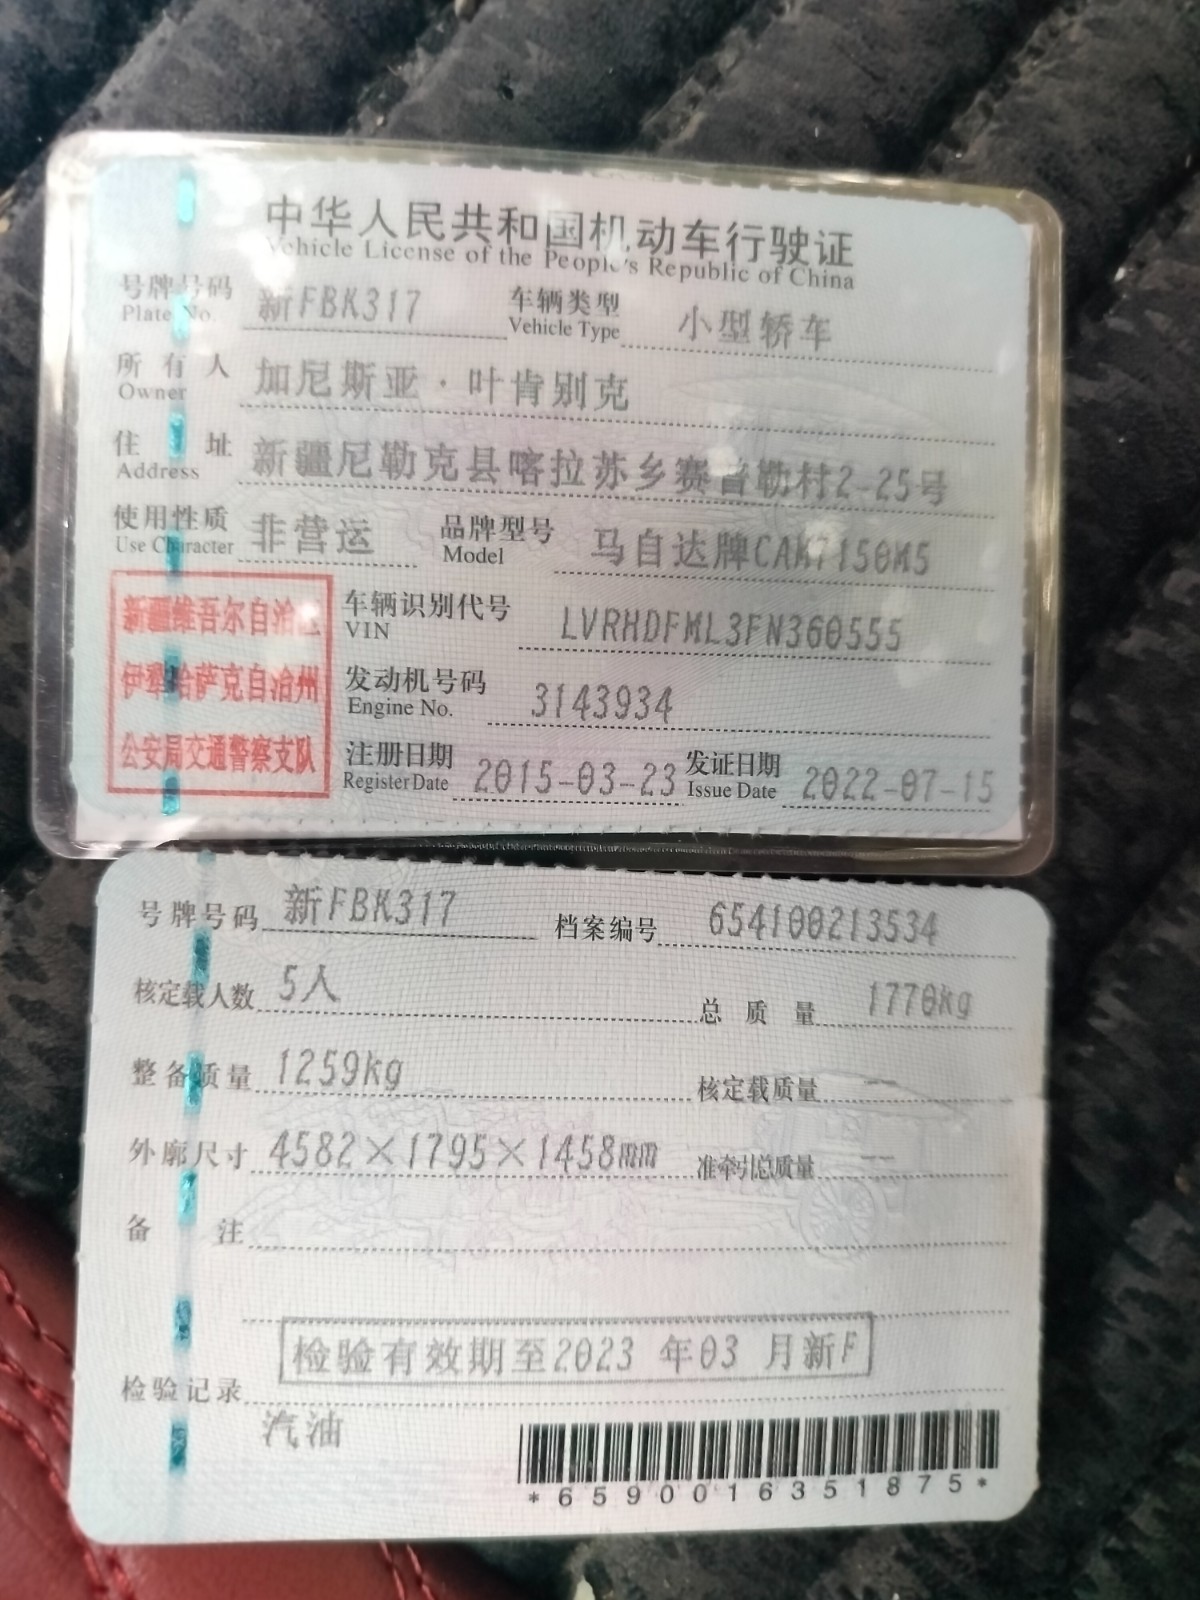 中华人民共和国机动车行驶证
Vehicle License of the People's Republic of China
号牌号码 新FBK317 车辆类型 小型轿车
Plate No. Vehicle Type
所有人 加尼斯亚·叶肯别克
Owner
住址 新疆尼勒克县喀拉苏乡赛普勒村2-25号
Address
使用性质 非营运 品牌型号 马自达牌CAM7150M5
Use Character Model
新疆维吾尔自治区
伊犁哈萨克自治州
公安局交通警察支队
车辆识别代号 LVRHDFML3FN360555
VIN
发动机号码 3143934
Engine No.
注册日期 2015-03-23 发证日期 2022-07-15
Register Date Issue Date
号牌号码 新FBK317 档案编号 654100213534
核定载人数 5人 总质量 1770kg
整备质量 1259kg 核定载质量 --
外廓尺寸 4582×1795×1458mm 准牵引总质量 --
备注
检验有效期至2023 年03 月新F
检验记录
汽油
*6590016351875*